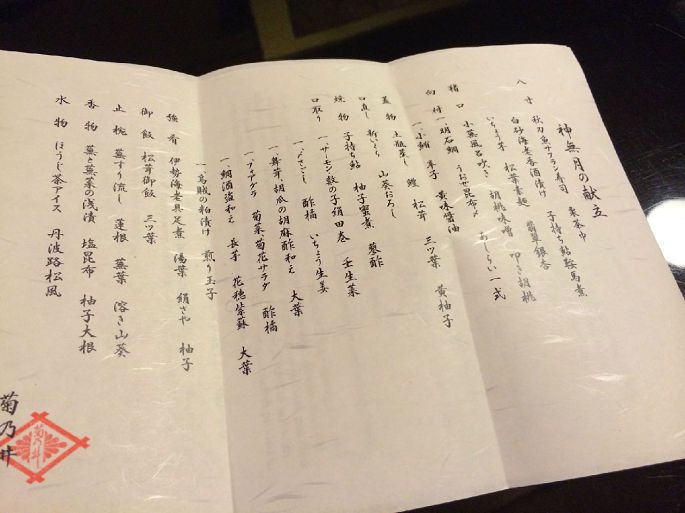 神無月の献立
八寸 秋刀魚サフラン寿司 栗茶巾
白砂海老香酒漬け 子持ち鮎鞍馬煮
いちょう芋 松葉素麺 翡翠銀杏
猪口 小蕪風呂吹き 胡桃味噌 叩き胡桃
向付 一、明石鯛 うおぜ昆布〆 あしらい一式
一、小鮪 辛子 黄味醤油
蓋物 土瓶蒸し 鱧 松茸 三ツ葉 黄柚子
口直し 新いくら 山葵おろし
焼物 子持ち鮎 柚子蜜煮 蓼酢
口取り 一、サーモン数の子絹田巻 壬生菜
一、〆さごし 酢橘 いちょう生姜
一、舞茸、胡瓜の胡麻酢和え 大葉
一、フォアグラ 菊菜菊花サラダ 酢橘
一、鯛酒盗和え 長芋 花穂紫蘇 大葉
一、烏賊の粕漬け 煎り玉子
強肴 伊勢海老具足煮 湯葉 絹さや 柚子
御飯 松茸御飯 三ツ葉
止椀 蕪すり流し 蓮根 蕪葉 溶き山葵
香物 蕪と蕪菜の浅漬 塩昆布 柚子大根
水物 ほうじ茶アイス 丹波路松風
菊乃井
菊乃井